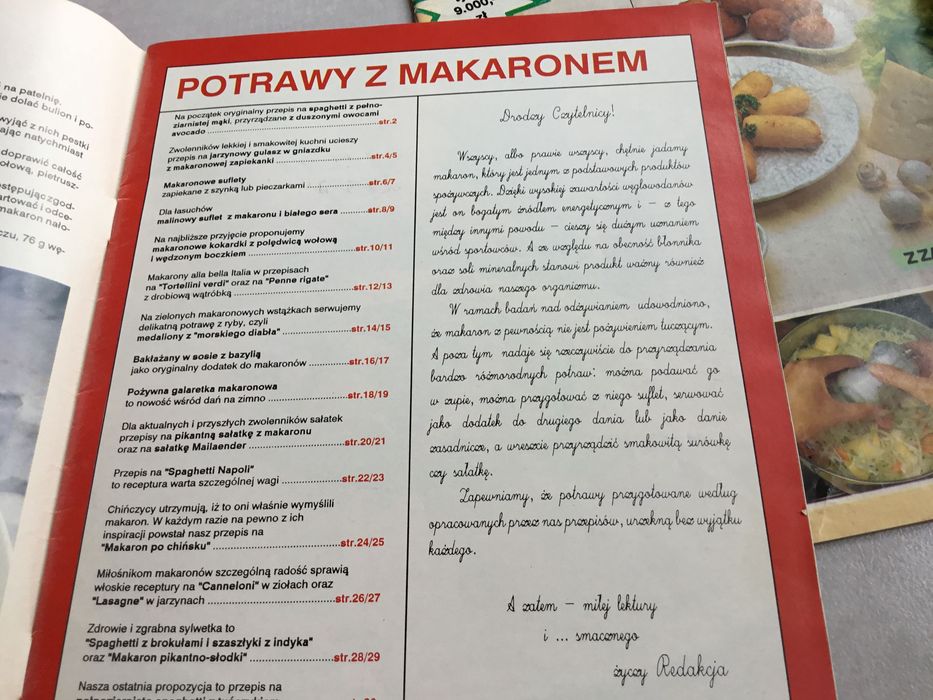 9.000,
zł
na patelnię.
ie dolać bulion i po-
wyjąć z nich pestki
ając natychmiast
doprawić całość
ołową, pietrusz-
stępując zgod-
artować i odce-
makaron nało-
czu, 76 g wę-
POTRAWY Z MAKARONEM
Na początek oryginalny przepis na spaghetti z pełno-
ziarnistej mąki, przyrządzane z duszonymi owocami
avocado ...str.2
Zwolenników lekkiej i smakowitej kuchni ucieszy
przepis na jarzynowy gulasz w gniazdku
z makaronowej zapiekanki ...str.4/5
Makaronowe suflety
zapiekane z szynką lub pieczarkami ...str.6/7
Dla łasuchów
malinowy suflet z makaronu i białego sera ...str.8/9
Na najbliższe przyjęcie proponujemy
makaronowe kokardki z polędwicą wołową
i wędzonym boczkiem ...str.10/11
Makarony alla bella Italia w przepisach
na "Tortellini verdi" oraz na "Penne rigate"
z drobiową wątróbką ...str.12/13
Na zielonych makaronowych wstążkach serwujemy
delikatną potrawę z ryby, czyli
medaliony z "morskiego diabła" ...str.14/15
Bakłażany w sosie z bazylią
jako oryginalny dodatek do makaronów ...str.16/17
Pożywna galaretka makaronowa
to nowość wśród dań na zimno ...str.18/19
Dla aktualnych i przyszłych zwolenników sałatek
przepisy na pikantną sałatkę z makaronu
oraz na sałatkę Mailaender ...str.20/21
Przepis na "Spaghetti Napoli"
to receptura warta szczególnej wagi ...str.22/23
Chińczycy utrzymują, iż to oni właśnie wymyślili
makaron. W każdym razie na pewno z ich
inspiracji powstał nasz przepis na
"Makaron po chińsku" ...str.24/25
Miłośnikom makaronów szczególną radość sprawią
włoskie receptury na "Canneloni" w ziołach oraz
"Lasagne" w jarzynach ...str.26/27
Zdrowie i zgrabna sylwetka to
"Spaghetti z brokułami i szaszłyki z indyka"
oraz "Makaron pikantno-słodki" ...str.28/29
Nasza ostatnia propozycja to przepis na
Drodzy Czytelnicy!
Wszyscy, albo prawie wszyscy, chętnie jadamy
makaron, który jest jednym z podstawowych produktów
spożywczych. Dzięki wysokiej zawartości węglowodanów
jest on bogatym źródłem energetycznym i – z tego
między innymi powodu – cieszy się dużym uznaniem
wśród sportowców. A ze względu na obecność błonnika
oraz soli mineralnych stanowi produkt ważny również
dla zdrowia naszego organizmu.
W ramach badań nad odżywianiem udowodniono,
że makaron z pewnością nie jest pożywieniem tuczącym.
A poza tym nadaje się rzeczywiście do przyrządzania
bardzo różnorodnych potraw: można podawać go
w zupie, można przygotować z niego suflet, serwować
jako dodatek do drugiego dania lub jako danie
zasadnicze, a wreszcie przyrządzić smakowitą surówkę
czy sałatkę.
Zapewniamy, że potrawy przygotowane według
opracowanych przez nas przepisów, urzekną bez wyjątku
każdego.
A zatem – miłej lektury
i ... smacznego
życzy Redakcja